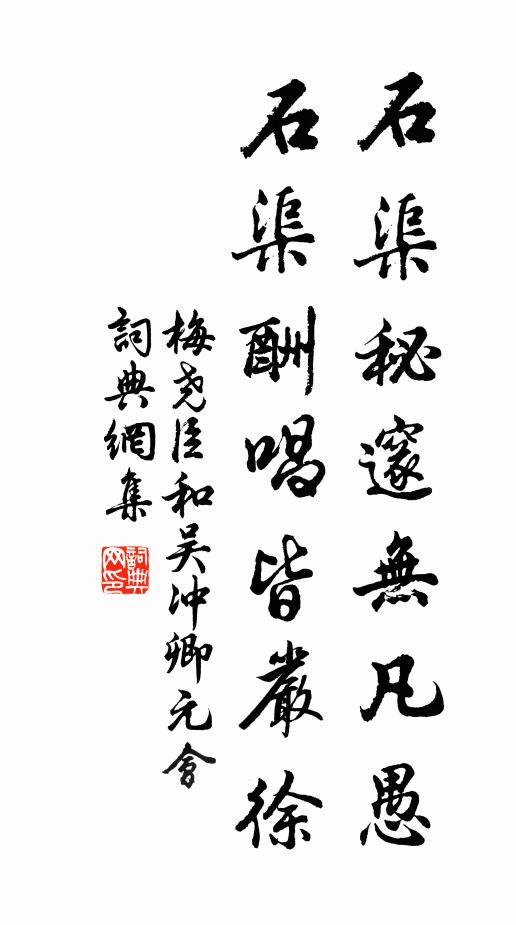 石渠秘邃無凡愚
石渠酬唱皆嚴徐
梅尧臣和吴沖卿元會
詞典網集
詞典
网印